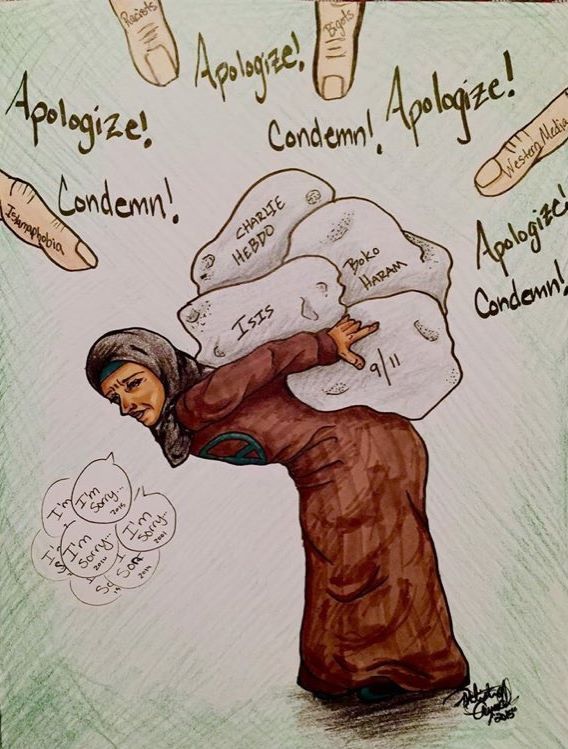 Racists
Bigots
Apologize!
Apologize!
Apologize!
Condemn!
Western Media
Condemn!
Islamaphobia
Apologize!
Condemn!
CHARLIE
HEBDO
BOKO
HARAM
ISIS
9/11
I'm
I'm
sorry...
2015
I'm
sorry...
2001
I'm
sorry...
I
2014
2015